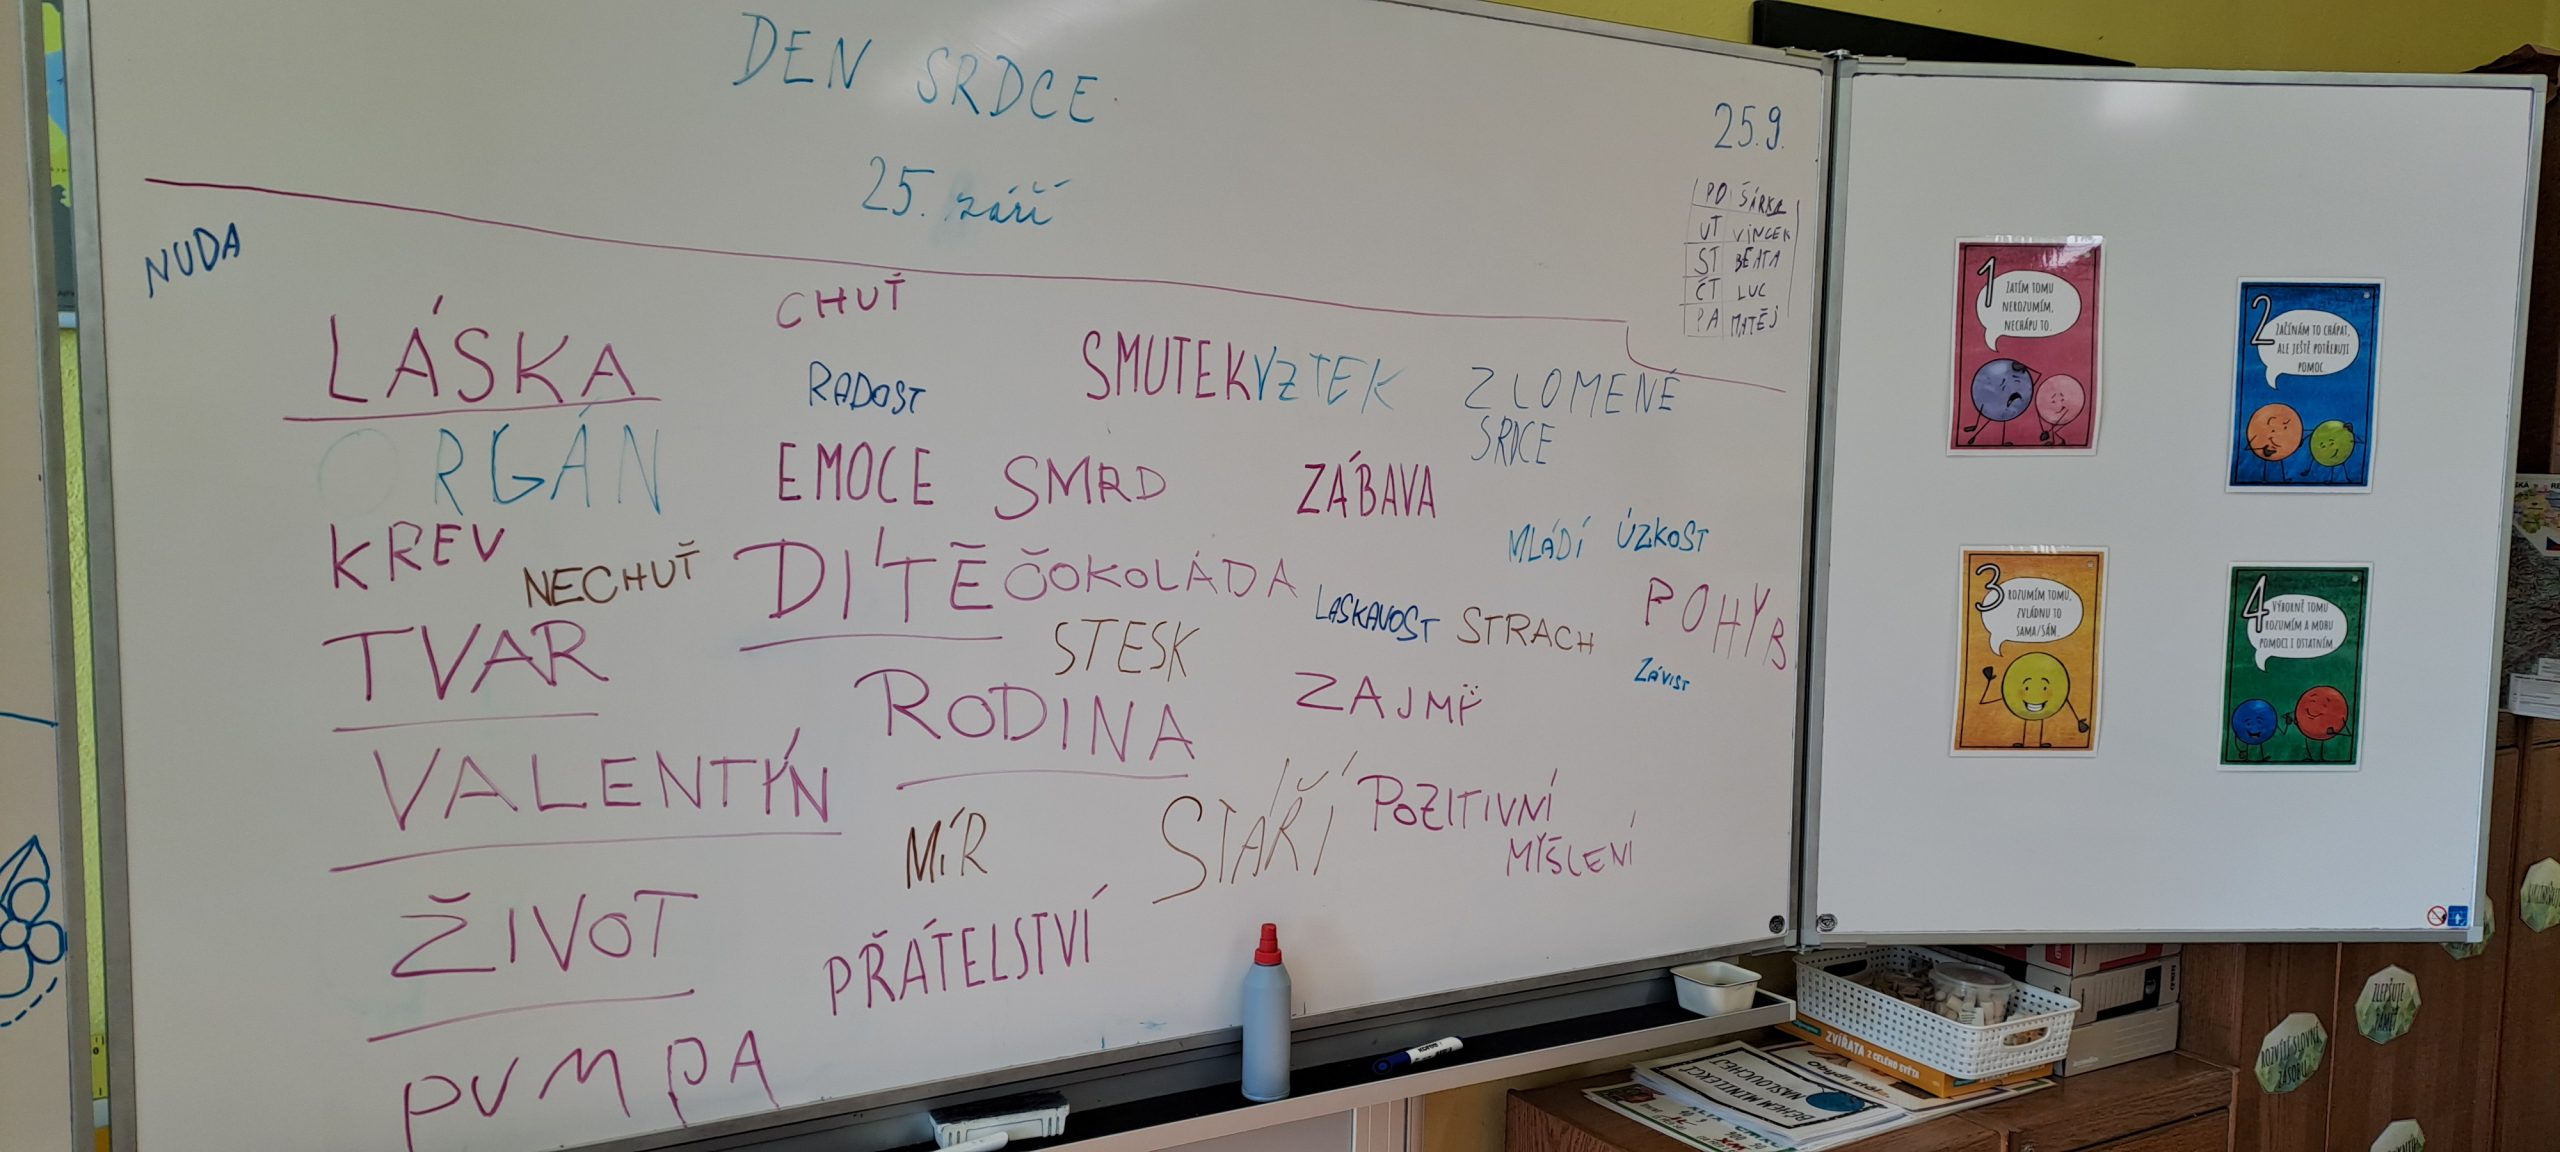 DEN SRDCE
25. září
25.9.
PO ŠÁRKA
UT VINCEK
ST BEATA
ČT LUC
PA MATĚJ
NUDA
LÁSKA
CHUŤ
RADOST
SMUTEK VZTEK
ZLOMENÉ
SRDCE
ORGÁN
EMOCE SMRD
ZÁBAVA
KREV
NECHUŤ
DÍTĚ ČOKOLÁDA
MLÁDÍ ÚZKOST
LASKAVOST STRACH
POHYB
TVAR
STESK
ZÁVIST
RODINA
VALENTÝN
MÍR
STÁŘÍ
POZITIVNÍ
MYŠLENÍ
ŽIVOT
PŘÁTELSTVÍ
PUMPA
1
ZATÍM TOMU
NEROZUMÍM,
NECHÁPU TO.
2
ZAČÍNÁM TO CHÁPAT,
ALE JEŠTĚ POTŘEBUJI
POMOC
3
ROZUMÍM TOMU,
ZVLÁDNU TO
SAMA/SÁM.
4
VÝBORNĚ TOMU
ROZUMÍM A MOHU
POMOCI I OSTATNÍM
ZVÍŘATA Z CELÉHO SVĚTA
BĚHEM MINILEKCÍ
NASLOUCHEJ
ZLEPŠUJE
PAMĚŤ
ROZVÍJÍ SLOVNÍ
ZÁSOBU